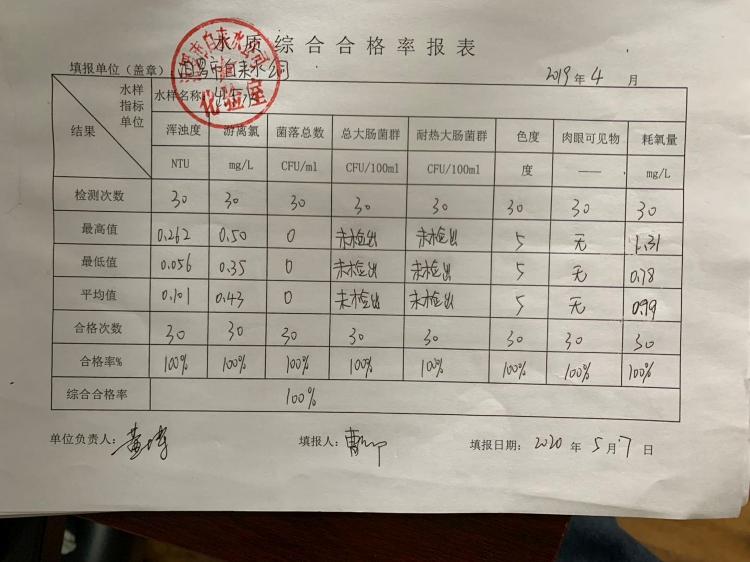 水质综合合格率报表
填报单位（盖章） 汨罗市自来水公司 2019年4月
化验室
水样 水样名称：
指标
单位
结果
浑浊度 游离氯 菌落总数 总大肠菌群 耐热大肠菌群 色度 肉眼可见物 耗氧量
NTU mg/L CFU/ml CFU/100ml CFU/100ml 度 —— mg/L
检测次数 30 30 30 30 30 30 30 30
最高值 0.262 0.50 0 未检出 未检出 5 无 1.31
最低值 0.056 0.35 0 未检出 未检出 5 无 0.78
平均值 0.101 0.43 0 未检出 未检出 5 无 0.99
合格次数 30 30 30 30 30 30 30 30
合格率% 100% 100% 100% 100% 100% 100% 100% 100%
综合合格率 100%
单位负责人： 填报人： 填报日期：2020年5月7日